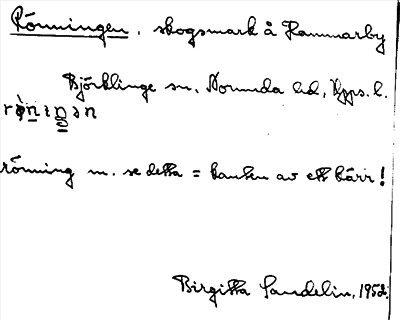 Rönningen, skogsmark å Hammarby
Björklinge sn, Norunda hd, Upps. l.
rönning m. se detta = kanten av ett kärr!
Birgitta Sandelin, 1952.